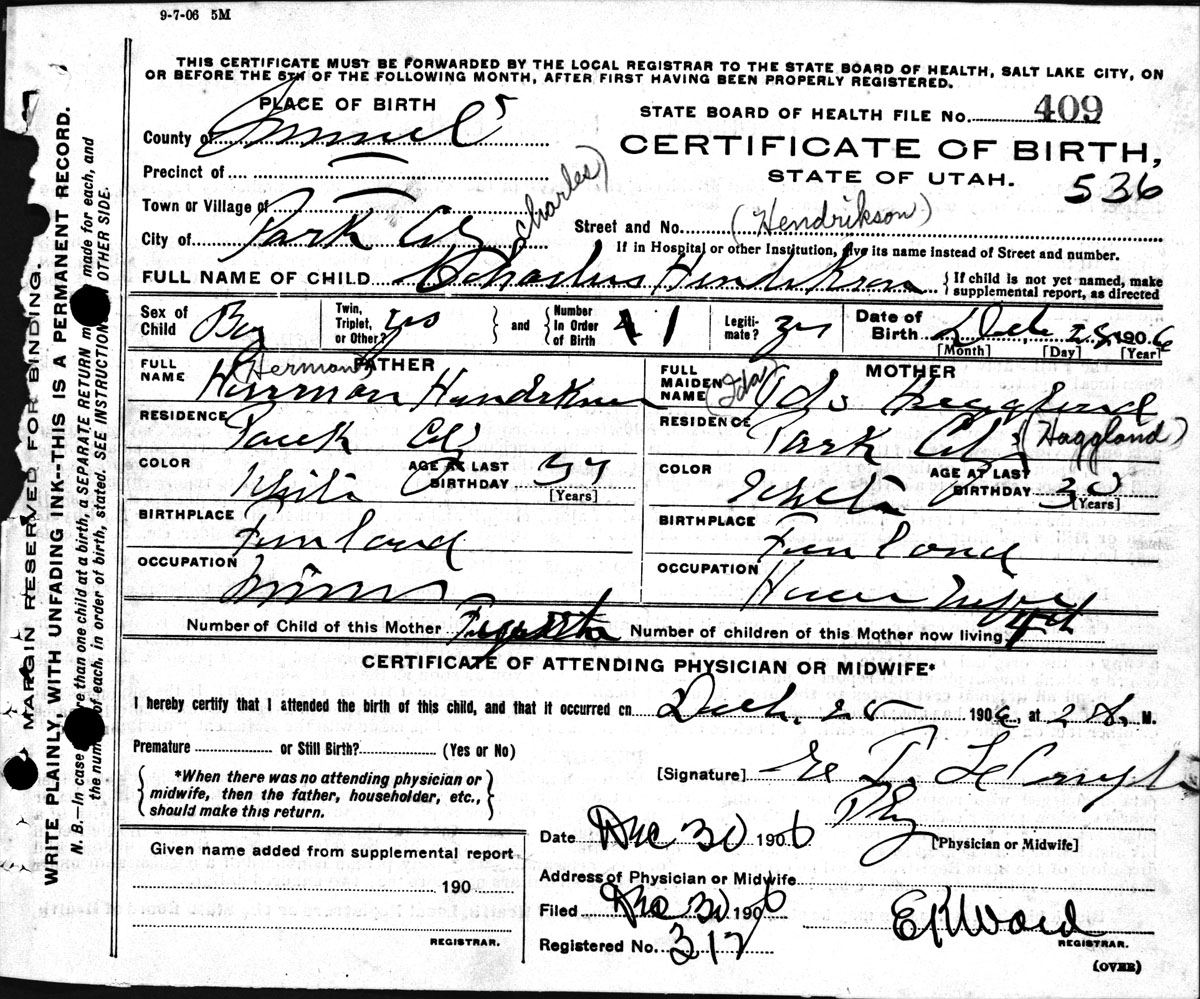 9-7-06 5M
THIS CERTIFICATE MUST BE FORWARDED BY THE LOCAL REGISTRAR TO THE STATE BOARD OF HEALTH, SALT LAKE CITY, ON
OR BEFORE THE 5TH OF THE FOLLOWING MONTH, AFTER FIRST HAVING BEEN PROPERLY REGISTERED.
PLACE OF BIRTH
STATE BOARD OF HEALTH FILE No. 409
County of
CERTIFICATE OF BIRTH,
Precinct of
STATE OF UTAH. 536
Town or Village of
(Charles)
Street and No. (Hendrikson)
City of Park City
If in Hospital or other Institution, give its name instead of Street and number.
FULL NAME OF CHILD Charles Hendrikson { If child is not yet named, make
supplemental report, as directed
Sex of Child Boy
Twin, Triplet, or Other? yes } and { Number In Order of Birth 1
Legitimate? yes
Date of Birth Dec 28 1906
[Month] [Day] [Year]
FATHER
FULL NAME (Herman)
Herman Hendrikson
RESIDENCE Park City
COLOR White AGE AT LAST BIRTHDAY 37 [Years]
BIRTHPLACE Finland
OCCUPATION Miner
MOTHER
FULL MAIDEN NAME (Ida) Ida Hegglund
RESIDENCE Park City (Haggland)
COLOR White AGE AT LAST BIRTHDAY 30 [Years]
BIRTHPLACE Finland
OCCUPATION House Wife
Number of Child of this Mother Number of children of this Mother now living
CERTIFICATE OF ATTENDING PHYSICIAN OR MIDWIFE*
I hereby certify that I attended the birth of this child, and that it occurred on Dec. 28 1906, at 2 A. M.
Premature or Still Birth? (Yes or No)
{ *When there was no attending physician or
midwife, then the father, householder, etc.,
should make this return. }
[Signature]
Phy
[Physician or Midwife]
Date Dec 30 1906
Address of Physician or Midwife
Filed Dec 30 1906
E R Ward
REGISTRAR.
Registered No. 317
(OVER)
Given name added from supplemental report
190
REGISTRAR.
MARGIN RESERVED FOR BINDING.
WRITE PLAINLY, WITH UNFADING INK--THIS IS A PERMANENT RECORD.
N. B.—In case re than one child at a birth, a SEPARATE RETURN m made for each, and
the num of each, in order of birth, stated. SEE INSTRUCTION OTHER SIDE.